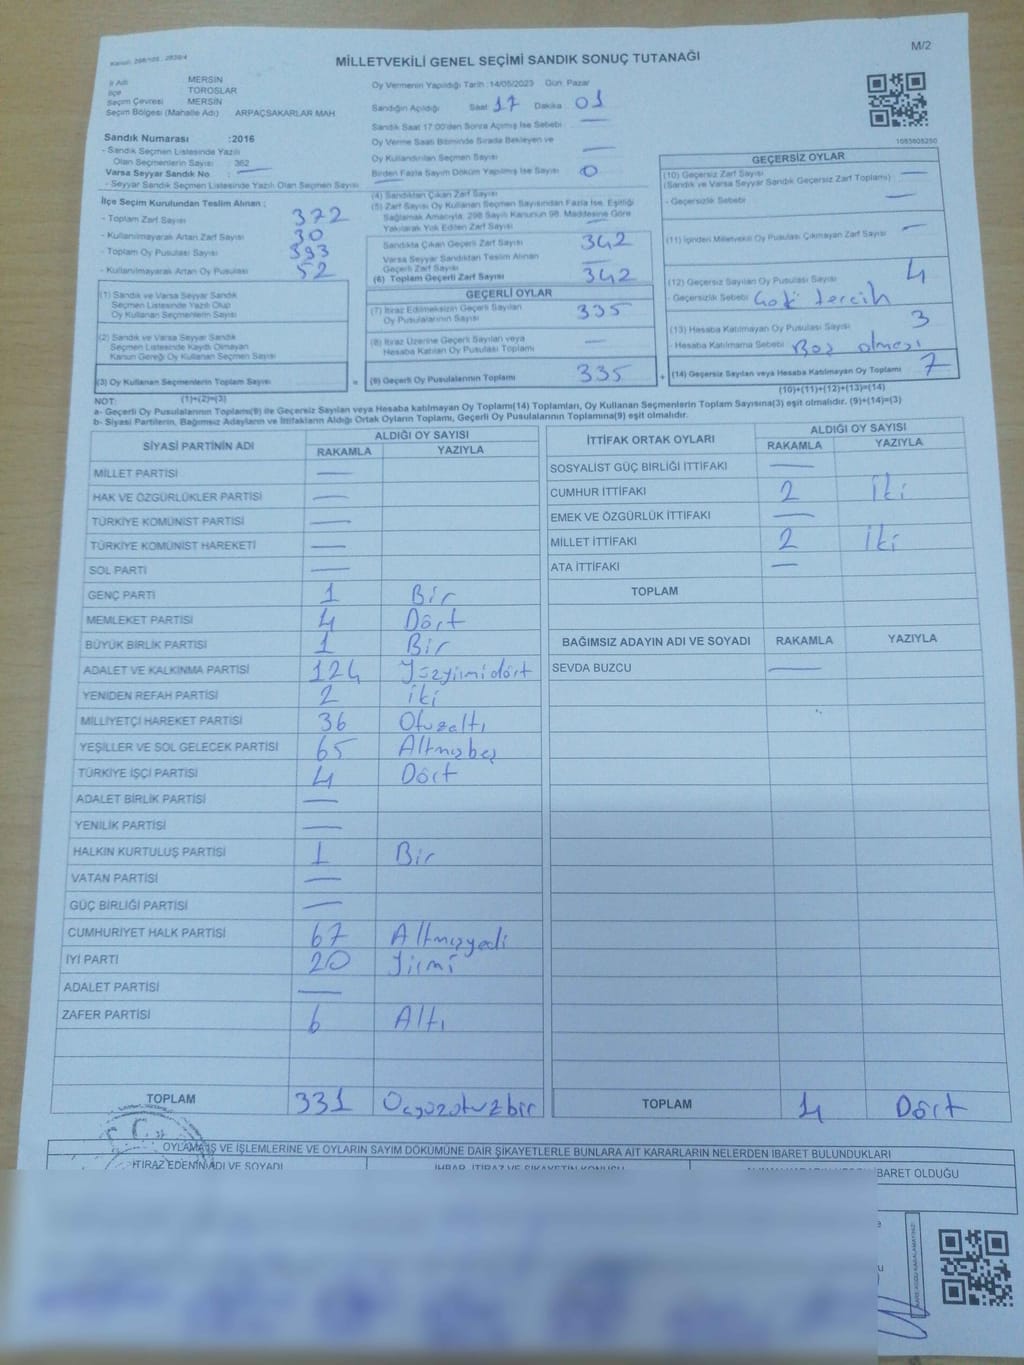 Kanun: 298/105 , 2839/4
M/2
MİLLETVEKİLİ GENEL SEÇİMİ SANDIK SONUÇ TUTANAĞI
İl Adı MERSİN
İlçe TOROSLAR
Seçim Çevresi MERSİN
Seçim Bölgesi (Mahalle Adı) ARPAÇSAKARLAR MAH
Sandık Numarası :2016
- Sandık Seçmen Listesinde Yazılı
Olan Seçmenlerin Sayısı : 362
Varsa Seyyar Sandık No
- Seyyar Sandık Seçmen Listesinde Yazılı Olan Seçmen Sayısı
Oy Vermenin Yapıldığı Tarih : 14/05/2023 Gün: Pazar
Sandığın Açıldığı Saat 17 Dakika 01
Sandık Saat 17:00'den Sonra Açılmış İse Sebebi —
Oy Verme Saati Bitiminde Sırada Bekleyen ve
Oy Kullandırılan Seçmen Sayısı —
Birden Fazla Sayım Döküm Yapılmış İse Sayısı 0
1083605250
İlçe Seçim Kurulundan Teslim Alınan :
- Toplam Zarf Sayısı 372
- Kullanılmayarak Artan Zarf Sayısı 30
- Toplam Oy Pusulası Sayısı 393
- Kullanılmayarak Artan Oy Pusulası 52
(1) Sandık ve Varsa Seyyar Sandık
Seçmen Listesinde Yazılı Olup
Oy Kullanan Seçmenlerin Sayısı
(2) Sandık ve Varsa Seyyar Sandık
Seçmen Listesinde Kayıtlı Olmayan
Kanun Gereği Oy Kullanan Seçmen Sayısı
(3) Oy Kullanan Seçmenlerin Toplam Sayısı
(1)+(2)=(3)
(4) Sandıktan Çıkan Zarf Sayısı
(5) Zarf Sayısı Oy Kullanan Seçmen Sayısından Fazla İse, Eşitliği
Sağlamak Amacıyla, 298 Sayılı Kanunun 98. Maddesine Göre
Yakılarak Yok Edilen Zarf Sayısı —
Sandıkta Çıkan Geçerli Zarf Sayısı 342
Varsa Seyyar Sandıktan Teslim Alınan
Geçerli Zarf Sayısı —
(6) Toplam Geçerli Zarf Sayısı 342
GEÇERLİ OYLAR
(7) İtiraz Edilmeksizin Geçerli Sayılan
Oy Pusulalarının Sayısı 335
(8) İtiraz Üzerine Geçerli Sayılan veya
Hesaba Katılan Oy Pusulası Toplamı —
= (9) Geçerli Oy Pusulalarının Toplamı 335 +
GEÇERSİZ OYLAR
(10) Geçersiz Zarf Sayısı —
(Sandık ve Varsa Seyyar Sandık Geçersiz Zarf Toplamı)
- Geçersizlik Sebebi —
(11) İçinden Milletvekili Oy Pusulası Çıkmayan Zarf Sayısı —
(12) Geçersiz Sayılan Oy Pusulası Sayısı 4
Geçersizlik Sebebi Çok tercih
(13) Hesaba Katılmayan Oy Pusulası Sayısı 3
- Hesaba Katılmama Sebebi Boş olması
(14) Geçersiz Sayılan veya Hesaba Katılmayan Oy Toplamı 7
(10)+(11)+(12)+(13)=(14)
NOT:
a- Geçerli Oy Pusulalarının Toplamı(9) ile Geçersiz Sayılan veya Hesaba katılmayan Oy Toplamı(14) Toplamları, Oy Kullanan Seçmenlerin Toplam Sayısına(3) eşit olmalıdır. (9)+(14)=(3)
b- Siyasi Partilerin, Bağımsız Adayların ve İttifakların Aldığı Ortak Oyların Toplamı, Geçerli Oy Pusulalarının Toplamına(9) eşit olmalıdır.
SİYASİ PARTİNİN ADI ALDIĞI OY SAYISI
RAKAMLA YAZIYLA
MİLLET PARTİSİ —
HAK VE ÖZGÜRLÜKLER PARTİSİ —
TÜRKİYE KOMÜNİST PARTİSİ —
TÜRKİYE KOMÜNİST HAREKETİ —
SOL PARTİ —
GENÇ PARTİ 1 Bir
MEMLEKET PARTİSİ 4 Dört
BÜYÜK BİRLİK PARTİSİ 1 Bir
ADALET VE KALKINMA PARTİSİ 124 Yüzyirmidört
YENİDEN REFAH PARTİSİ 2 iki
MİLLİYETÇİ HAREKET PARTİSİ 36 Otuzaltı
YEŞİLLER VE SOL GELECEK PARTİSİ 65 Altmışbeş
TÜRKİYE İŞÇİ PARTİSİ 4 Dört
ADALET BİRLİK PARTİSİ —
YENİLİK PARTİSİ —
HALKIN KURTULUŞ PARTİSİ 1 Bir
VATAN PARTİSİ —
GÜÇ BİRLİĞİ PARTİSİ —
CUMHURİYET HALK PARTİSİ 67 Altmışyedi
İYİ PARTİ 20 Yirmi
ADALET PARTİSİ —
ZAFER PARTİSİ 6 Altı
TOPLAM 331 Üçyüzotuzbir
İTTİFAK ORTAK OYLARI ALDIĞI OY SAYISI
RAKAMLA YAZIYLA
SOSYALİST GÜÇ BİRLİĞİ İTTİFAKI —
CUMHUR İTTİFAKI 2 İki
EMEK VE ÖZGÜRLÜK İTTİFAKI —
MİLLET İTTİFAKI 2 İki
ATA İTTİFAKI —
TOPLAM
BAĞIMSIZ ADAYIN ADI VE SOYADI RAKAMLA YAZIYLA
SEVDA BUZCU —
TOPLAM 4 Dört
OYLAMA İŞ VE İŞLEMLERİNE VE OYLARIN SAYIM DÖKÜMÜNE DAİR ŞİKAYETLERLE BUNLARA AİT KARARLARIN NELERDEN İBARET BULUNDUKLARI
İTİRAZ EDENİN ADI VE SOYADI
İHBAR, İTİRAZ VE ŞİKAYETİN KONUSU
İBARET OLDUĞU